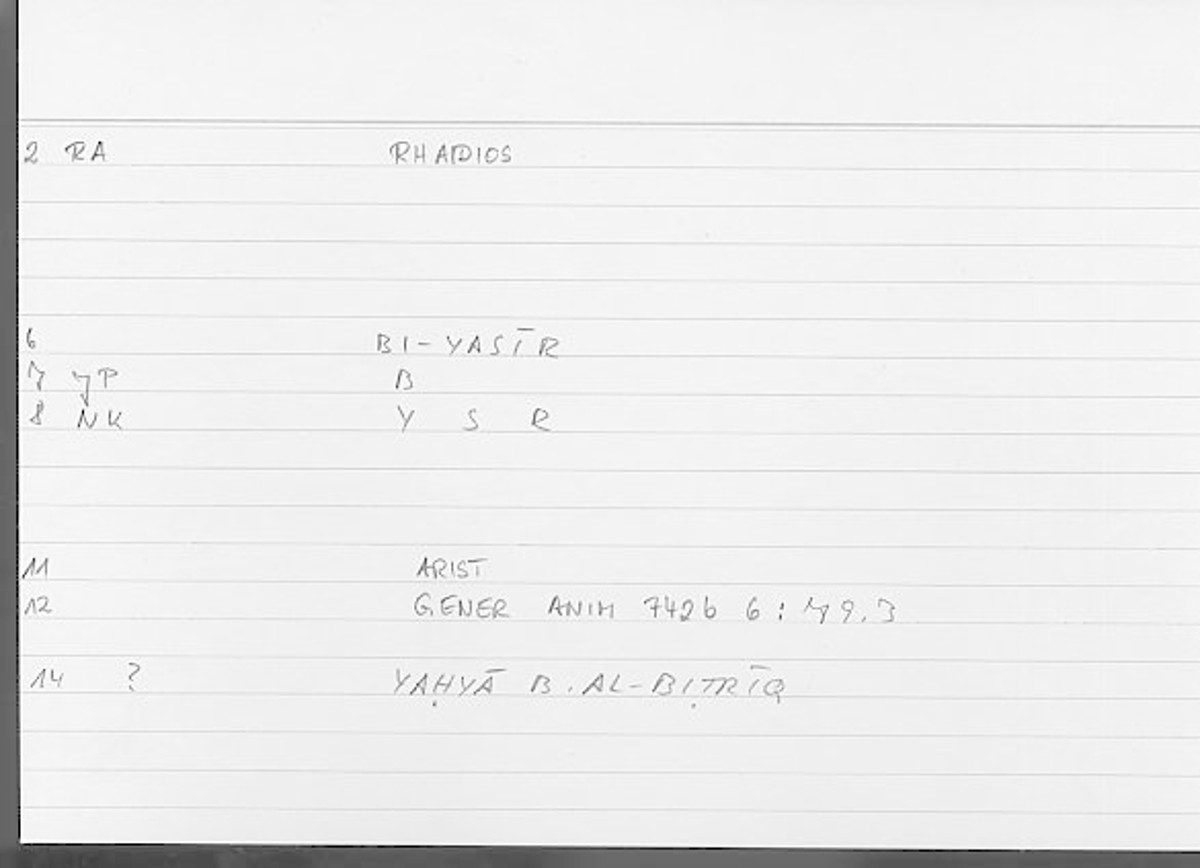 2 RA RHADIOS
6 BI-YASĪR
7 YP B
8 NK Y S R
11 ARIST
12 GENER ANIM 742b 6 : 79.3
14 ? YAḤYĀ B. AL-BIṬRĪQ